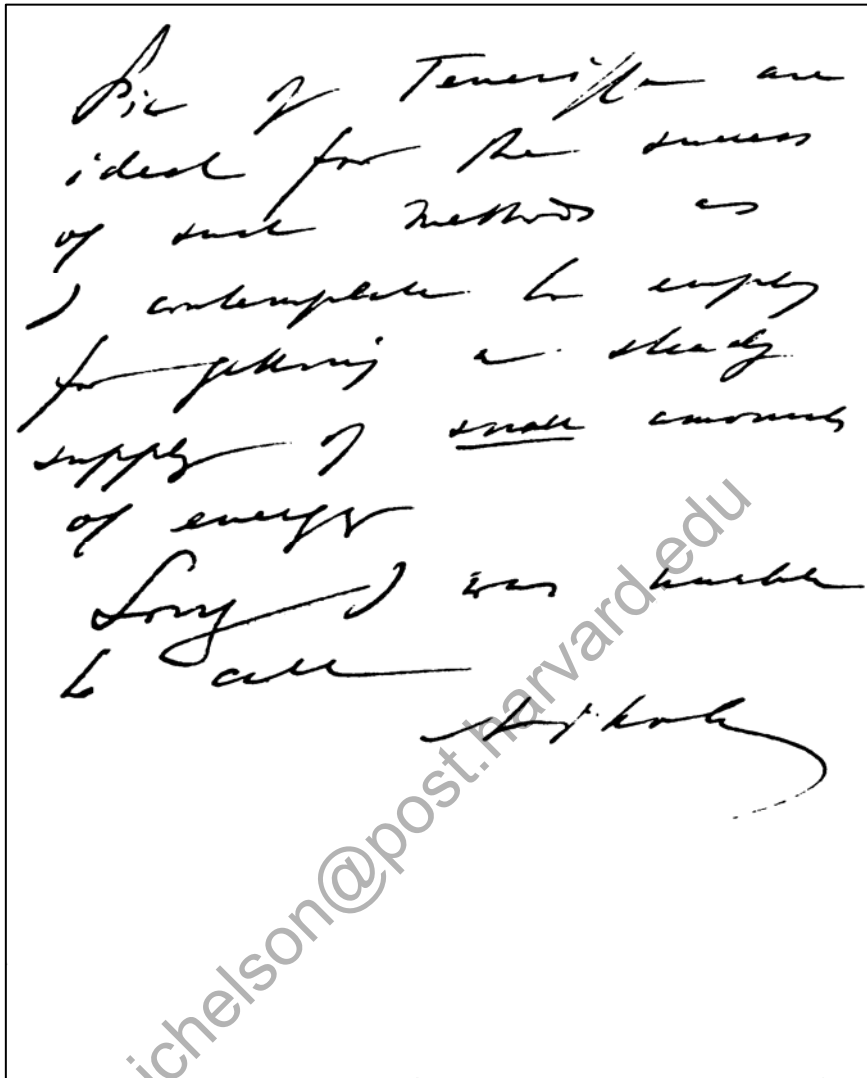 Pic of Teneriffe are
ideal for the success
of such methods as
I contemplate to employ
for getting a steady
supply of small amounts
of energy
Sorry I was unable
to call
ichelson@post.harvard.edu